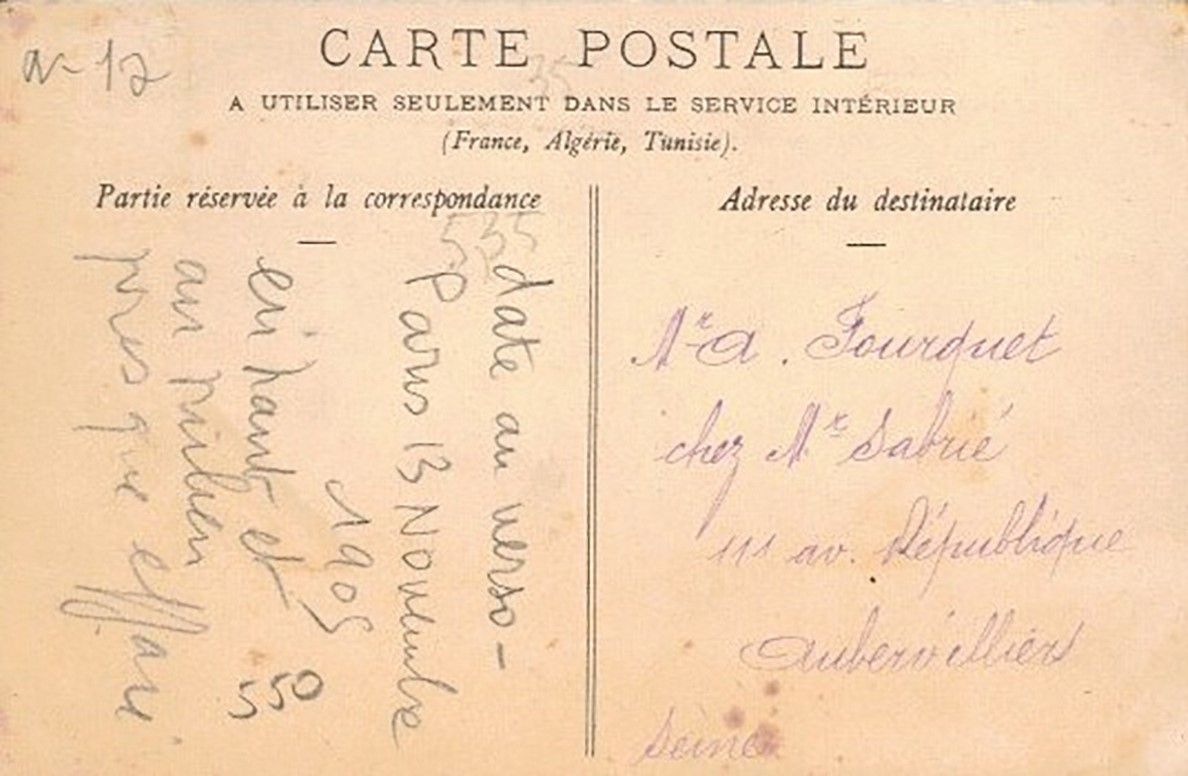 a- 12
CARTE POSTALE
35
A UTILISER SEULEMENT DANS LE SERVICE INTÉRIEUR
(France, Algérie, Tunisie).
Partie réservée à la correspondance
535
date au verso -
Paris 13 Novembre
1905
en haut et
au milieu
presque effacé
550
Adresse du destinataire
Mr A. Fourquet
chez Mr Sabrié
111 av. République
Aubervilliers
Seine